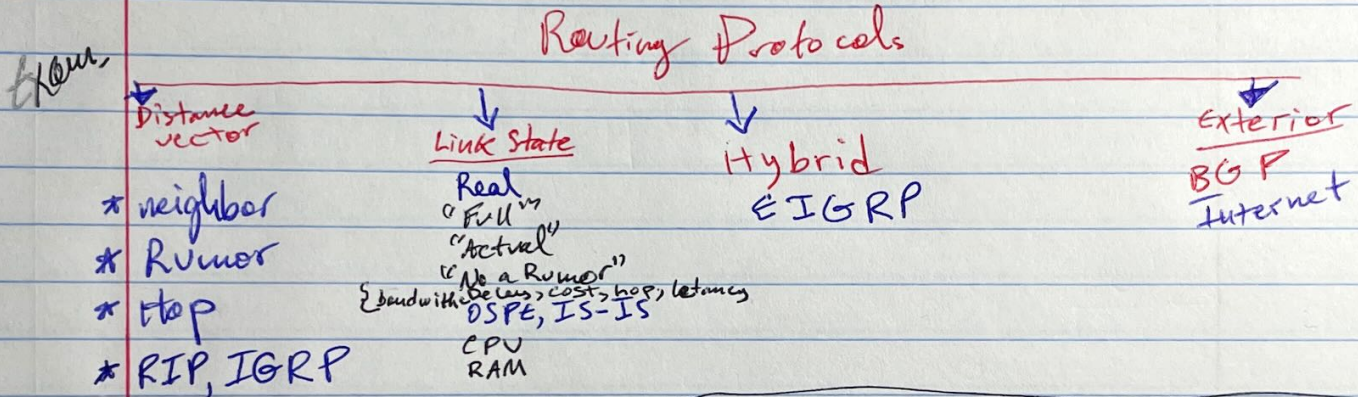 Routing Protocols
Exam,
Distance
vector
* neighbor
* Rumor
* Hop
* RIP, IGRP
Link State
Real
"Full"
"Actual"
"No a Rumor"
{bandwith, Delay, cost, hop, latency
OSPF, IS-IS
CPU
RAM
Hybrid
EIGRP
Exterior
BGP
Internet